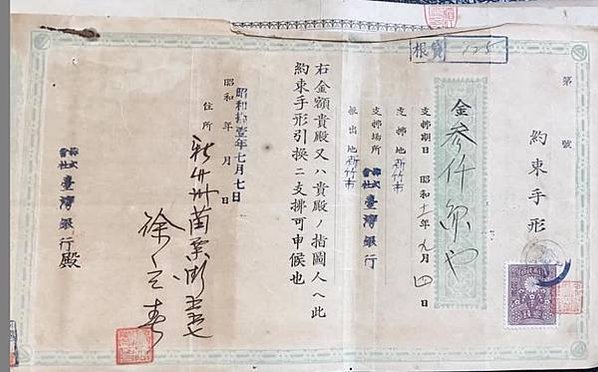 根質 125
第 號
約束手形
金參仟圓也
支拂期日 昭和十一年九月四日
支拂地 新竹市
支拂場所 株式會社臺灣銀行
振出地 新竹市
右金額貴殿又ハ貴殿ノ指圖人ヘ此
約束手形引換ニ支拂可申候也
昭和拾壹年七月七日
昭和 年 月 日
住所 新竹州
株式會社臺灣銀行殿